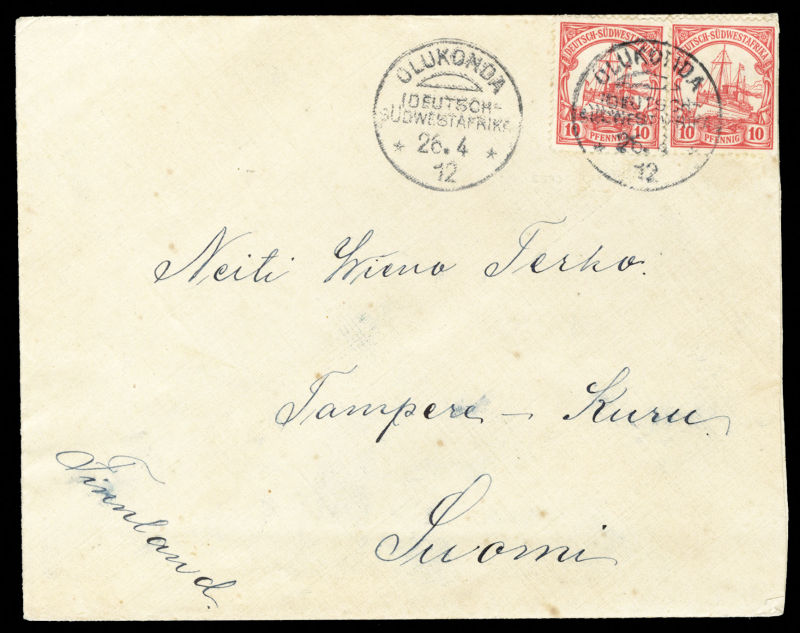 OLUKONDA
(DEUTSCH-
SÜDWESTAFRIKA
26.4
12
DEUTSCH-SÜDWESTAFRIKA
10 PFENNIG 10
DEUTSCH-SÜDWESTAFRIKA
10 PFENNIG 10
OLUKONDA
(DEUTSCH-
SÜDWESTAFRIKA
26.4
12
Neiti Wieno Terho.
Tampere – Kuru
Finnland.
Suomi